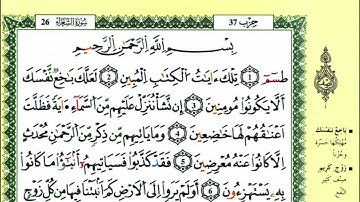 حزب 37
سورة الشعراء
26
بِسْمِ اللَّهِ الرَّحْمَٰنِ الرَّحِيمِ
طسٓمٓ ① تِلْكَ ءَايَٰتُ الْكِتَٰبِ الْمُبِينِ ② لَعَلَّكَ بَٰخِعٌ نَّفْسَكَ
أَلَّا يَكُونُوا مُومِنِينَ ③ إِن نَّشَأْ نُنَزِّلْ عَلَيْهِم مِّنَ السَّمَآءِ ا۬يَةً فَظَلَّتَ
اَعْنَٰقُهُمْ لَهَا خَٰضِعِينَ ④ وَمَا يَاتِيهِم مِّن ذِكْرٍ مِّنَ الرَّحْمَٰنِ مُحْدَثٍ
اِلَّا كَانُوا عَنْهُ مُعْرِضِينَ ⑤ فَقَدْ كَذَّبُوا فَسَيَاتِيهِمُ أَنۢبَٰٓؤُا مَا كَانُوا
بِهِ يَسْتَهْزِءُونَ ⑥ أَوَلَمْ يَرَوِا اِلَى الَارْضِ كَمَ اَنۢبَتْنَا فِيهَا مِن كُلِّ زَوْجٍ
باخع نفسك
مهلكها حسرة
وحزنا
زوج كريم
صنف كثير
النفع